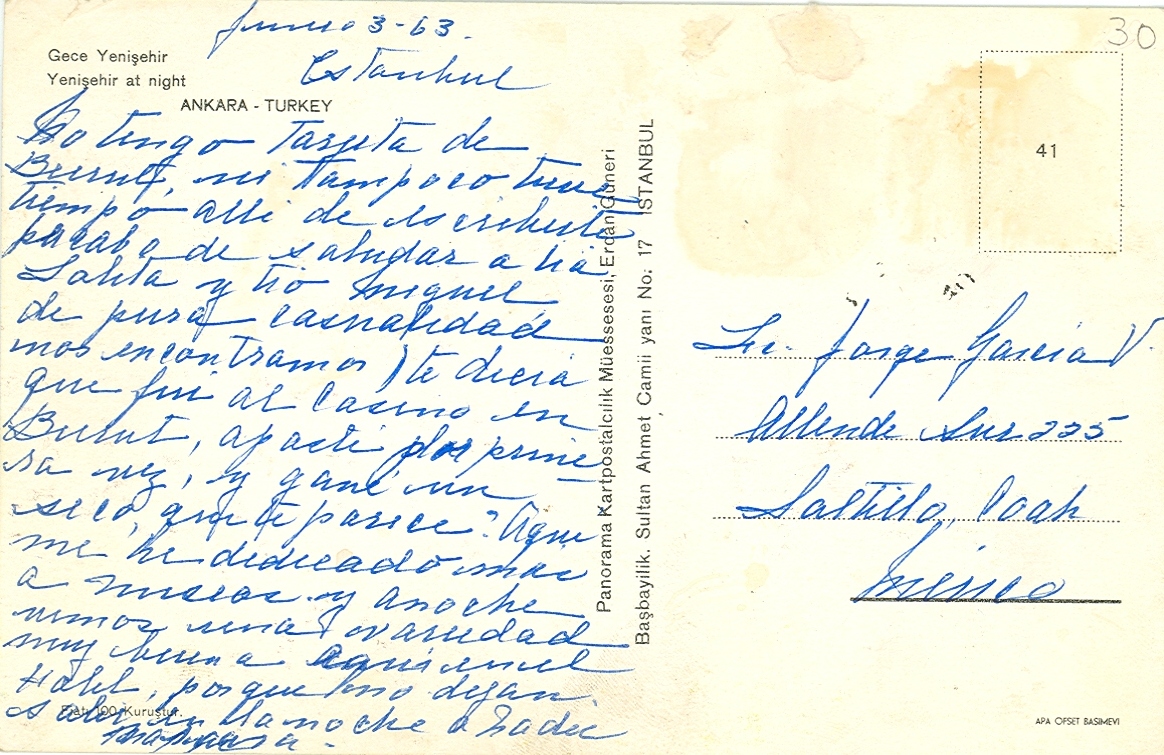 Junio 3-63.
Estanbul
Gece Yenişehir
Yenişehir at night
ANKARA - TURKEY
No tengo Tarjeta de
Beirut, ni Tampoco tuve
tiempo alli de escribirte
acabo de saludar a tia
Lolita y tio Miguel
de pura casualidad
nos encontramos) te decia
que fui al Casino en
Beirut, aposté por prime
ra vez, y gané un
seco, que te parece? Aqui
me he dedicado mas
a museos y anoche
vimos una variedad
muy buena aqui en el
Hotel, porque no dejan
salir en la noche a nadie
Fiatı 100 Kuruştur.
Panorama Kartpostalcılık Müessesesi, Erdan Güneri
Başbayilik. Sultan Ahmet Camii yanı No: 17 ISTANBUL
30
41
Lic. Jorge Garcia V.
Allende Sur 225
Saltillo, Coah
México
APA OFSET BASIMEVI